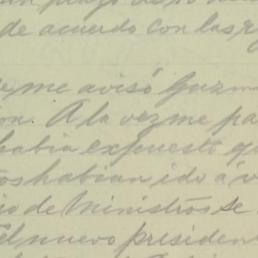 de acuerdo con las
me avisó Guzm
on. A la vez me pa
habia expuesto qu
os habian ido á v
io de Ministros se
El nuevo presiden